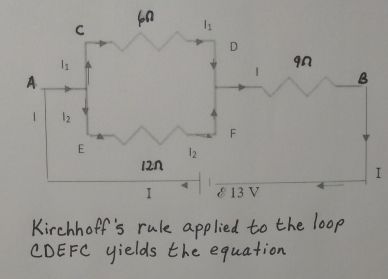 6Ω
C
I₁
D
9Ω
I₁
I
A
B
I
I₂
E
F
I₂
12Ω
I
I
ℰ 13 V
Kirchhoff's rule applied to the loop
CDEFC yields the equation